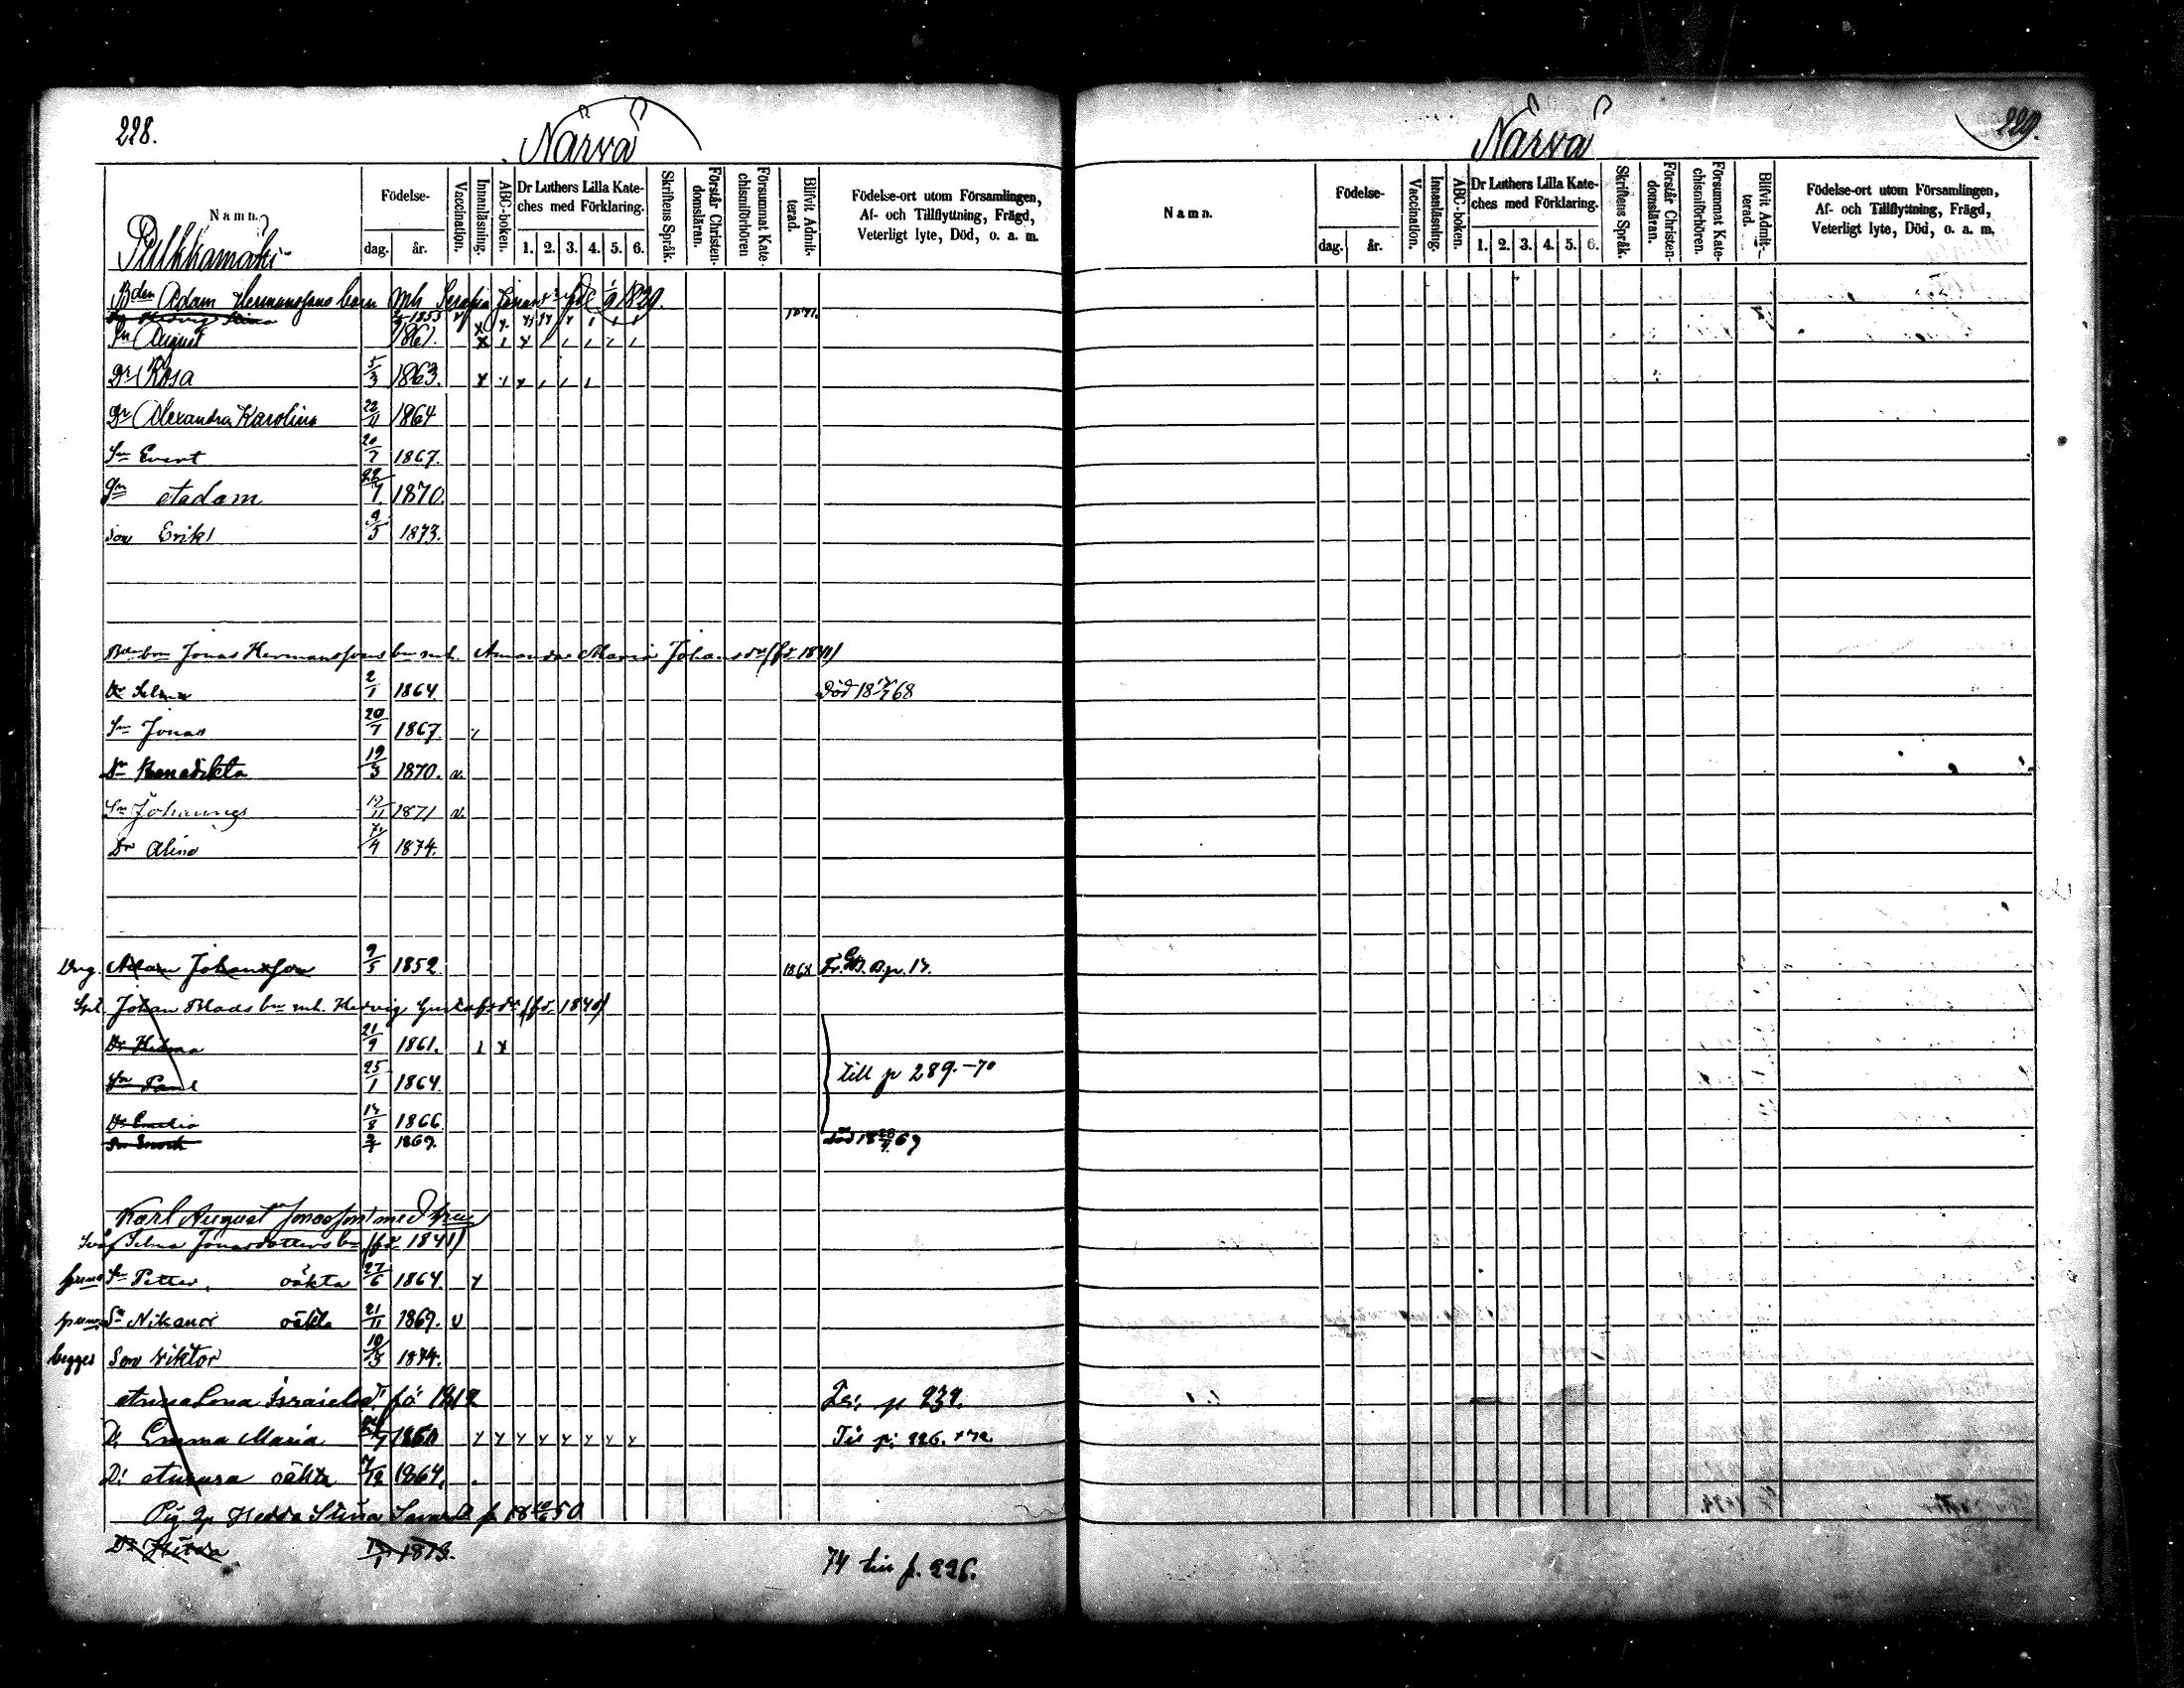 228.
Närvä
Namn.
Födelse-
dag.
år.
Vaccination.
Innanläsning.
ABC-boken.
Dr Luthers Lilla Kate-
ches med Förklaring.
1. 2. 3. 4. 5. 6.
Skriftens Språk.
Förstår Christen-
domsläran.
Försummat Kate-
chismiförhören
Blifvit Admit-
terad.
Födelse-ort utom Församlingen,
Af- och Tillflyttning, Frägd,
Veterligt lyte, Död, o. a. m.
Pulkkamäki
Bden Adam Hermanssons barn mh Serafia 1839.
Hedvig Stina 1855 1871.
Sn August 1861.
Dr Rosa 5/3 1863.
Dr Alexandra Karolina 22/11 1864
Sn Evert 20/7 1867.
Sn Aadam 22/7 1870.
Son Erik 9/5 1873.
Jonas Hermanssons bn mh. Amanda Maria Johansdr (fd. 1841)
Dr Selma 2/1 1864. Död 18 68
Sn Jonas 20/7 1867.
Dr Benedikta 19/3 1870. v.
Sn Johannes 12/11 1871 v.
Dr Alina 4 1874.
Drg. Adam Johansson 9/5 1852 1868 p. 17.
Johan Blads bn mh. Hedvig Gustafsdr (fd. 1840)
Dr Hilma 21/9 1861.
Sn Paul 25/1 1864.
till p 289.-70
Dr Emelia 8 1866
Sn Enock 1869. Död 18 69
Karl August Jonasson med hru
Selma Jonasdotters bn (fd 1841)
Sn Petter, oäkta 27/6 1864.
Sn Nikanor oäkta 21/11 1869. v
begges Son Viktor 10/3 1874.
Anna Lena Israelsd. fö 1812 p 239.
D. Emma Maria 1860 p. 226.
Dr oäkta 7/12 1864.
Pig Hedda Stina 18 50
Dr 1873. 74 till p. 226.
Närvä
229.
Namn.
Födelse-
dag.
år.
Vaccination.
Innanläsning.
ABC-boken.
Dr Luthers Lilla Kate-
ches med Förklaring.
1. 2. 3. 4. 5. 6.
Skriftens Språk.
Förstår Christen-
domsläran.
Försummat Kate-
chismiförhören.
Blifvit Admit-
terad.
Födelse-ort utom Församlingen,
Af- och Tillflyttning, Frägd,
Veterligt lyte, Död, o. a. m.